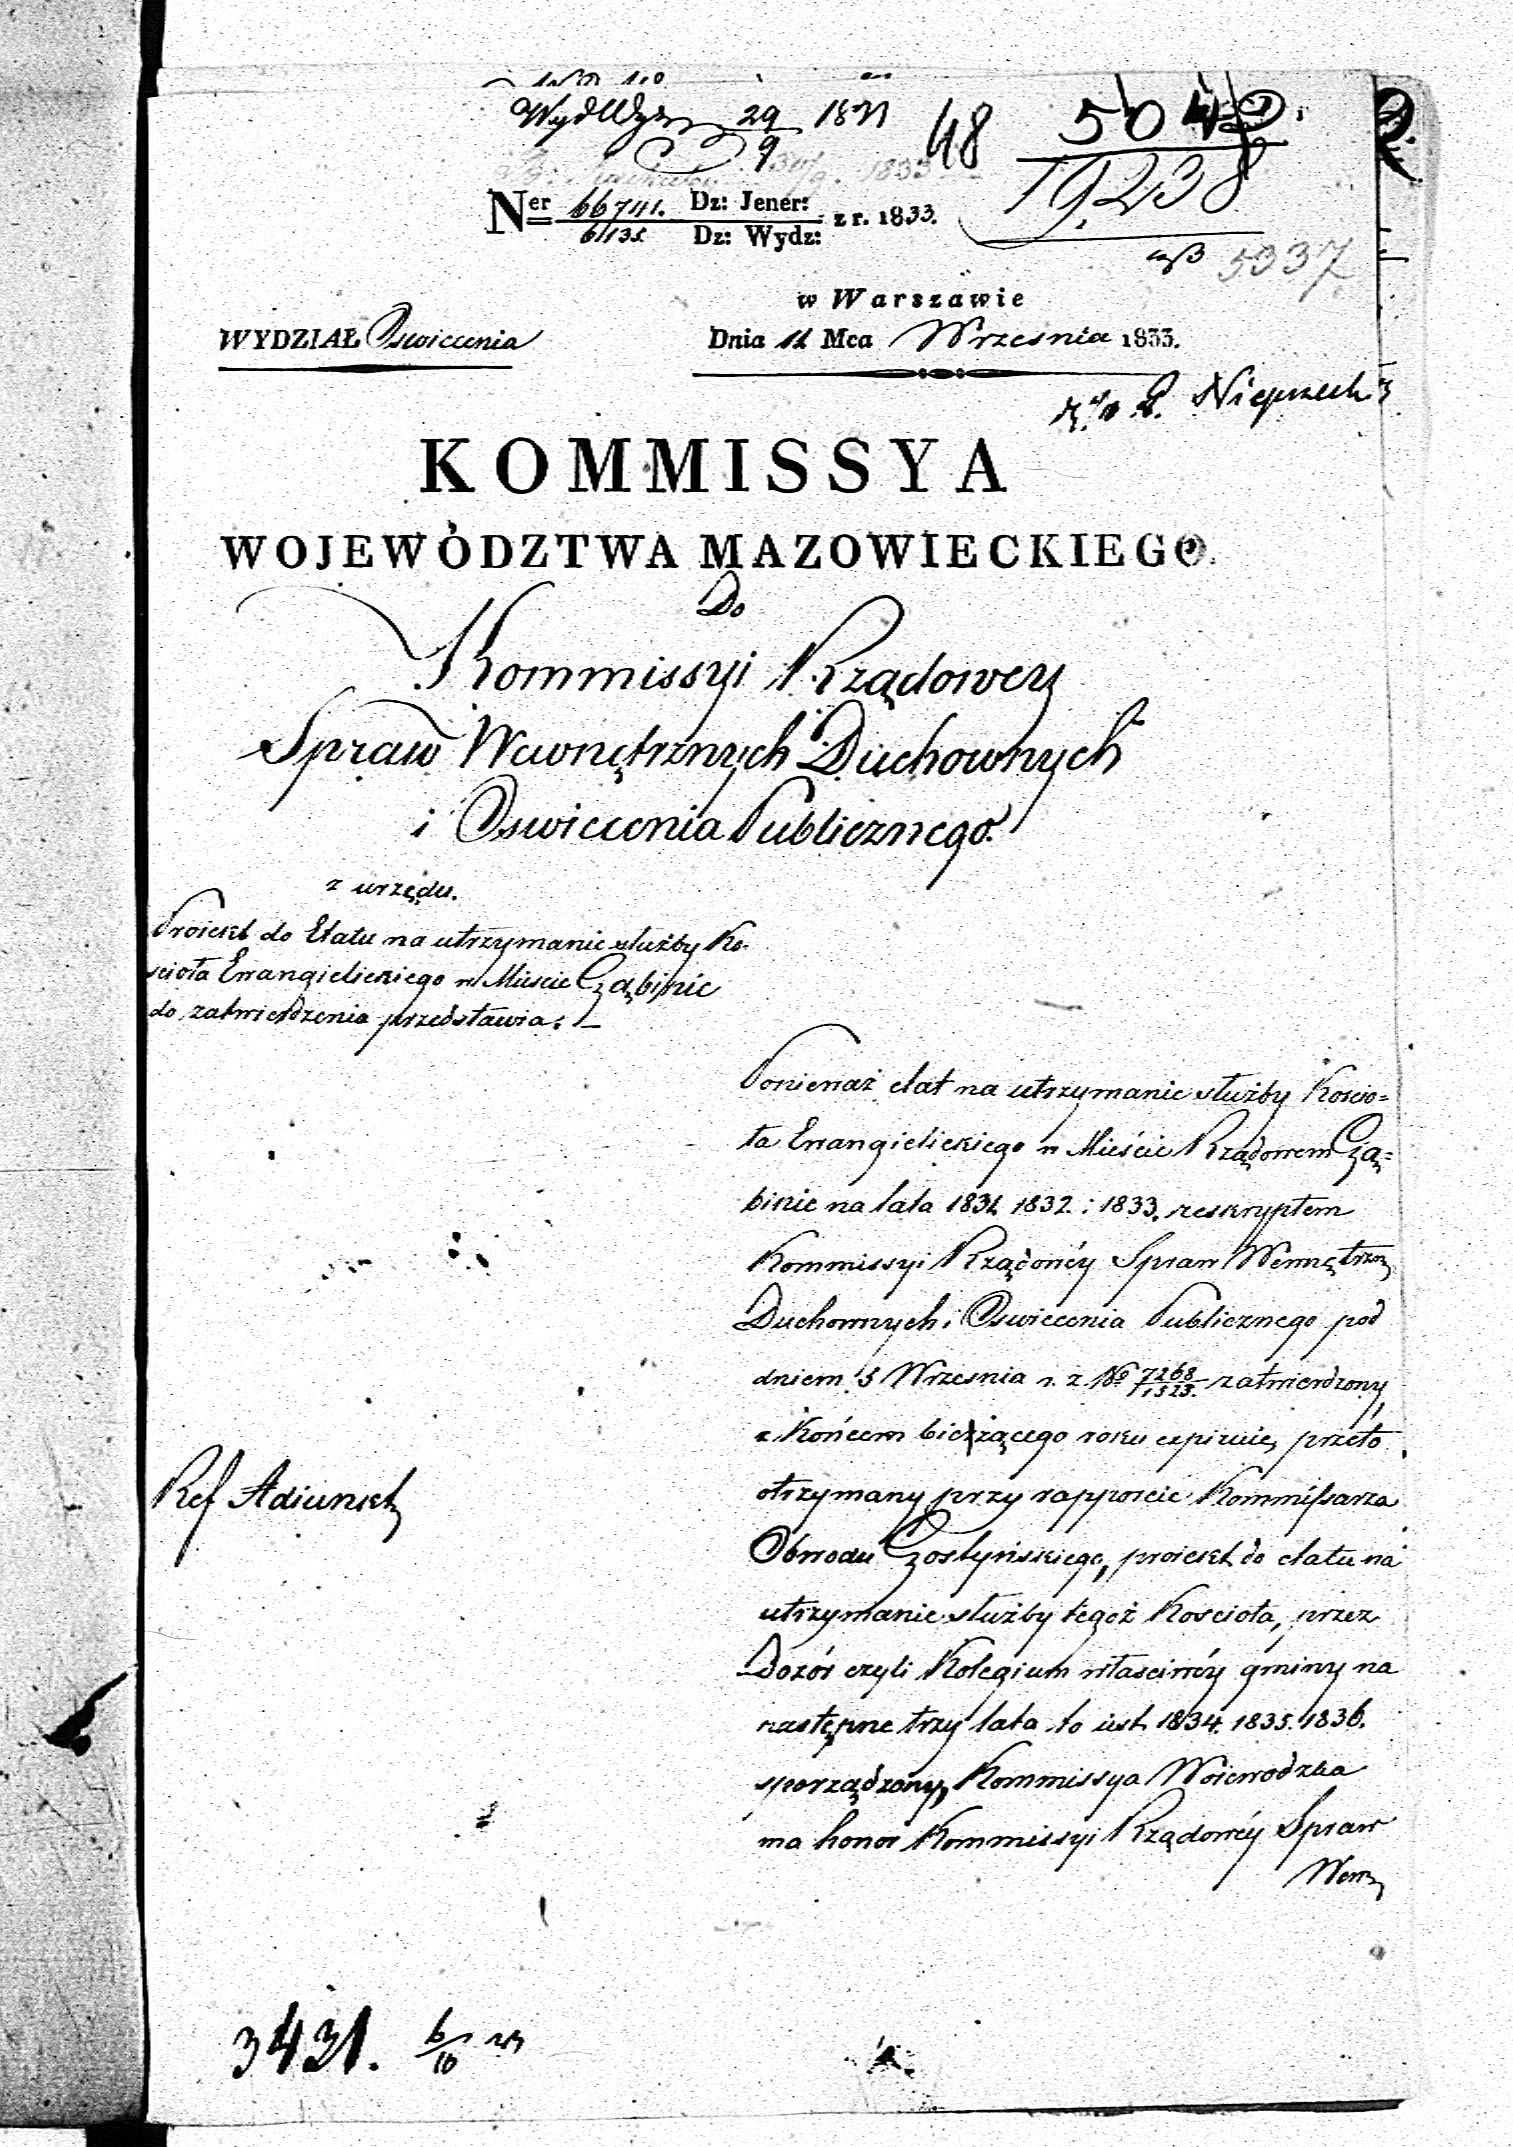 29/9 18
48
504
19,238
5337
Ner 66741. Dz: Jener: z r. 1833.
61135. Dz: Wydz:
w Warszawie
WYDZIAŁ Oswiecenia
Dnia 11 Mca Wrzesnia 1833.
KOMMISSYA
WOJEWÓDZTWA MAZOWIECKIEGO.
Do
Kommissyi Rządowey
Spraw Wewnętrznych Duchownych
i Oswiecenia Publicznego.
z urzędu.
Proiekt do Etatu na utrzymanie służby Ko-
ścioła Ewangielickiego w Mieście Gąbinie
do zatwierdzenia przedstawia:
Ponieważ etat na utrzymanie służby Koscio=
ła Ewangielickiego w Mieście Rządowem Gą=
binie na lata 1831. 1832. i 1833. reskryptem
Kommissyi Rządowéy Spraw Wewnętrzn
Duchownych i Oswiecenia Publicznego pod
dniem 5 Wrzesnia r. z. No 7268/1523. zatwierdzony,
z końcem bieżącego roku expiruie, przeto
otrzymany przy rapporcie Kommissarza
Obwodu Gostyńskiego, proiekt do etatu na
utrzymanie służby tegoż Kościoła, przez
Dozór czyli Kolegium własciwéy gminy na
następne trzy lata to iest 1834. 1835. 1836.
sporządzony, Kommissya Woiewodzka
ma honor Kommissyi Rządowéy Spraw
Wewn
Ref Adiunkt
3431. 6/10